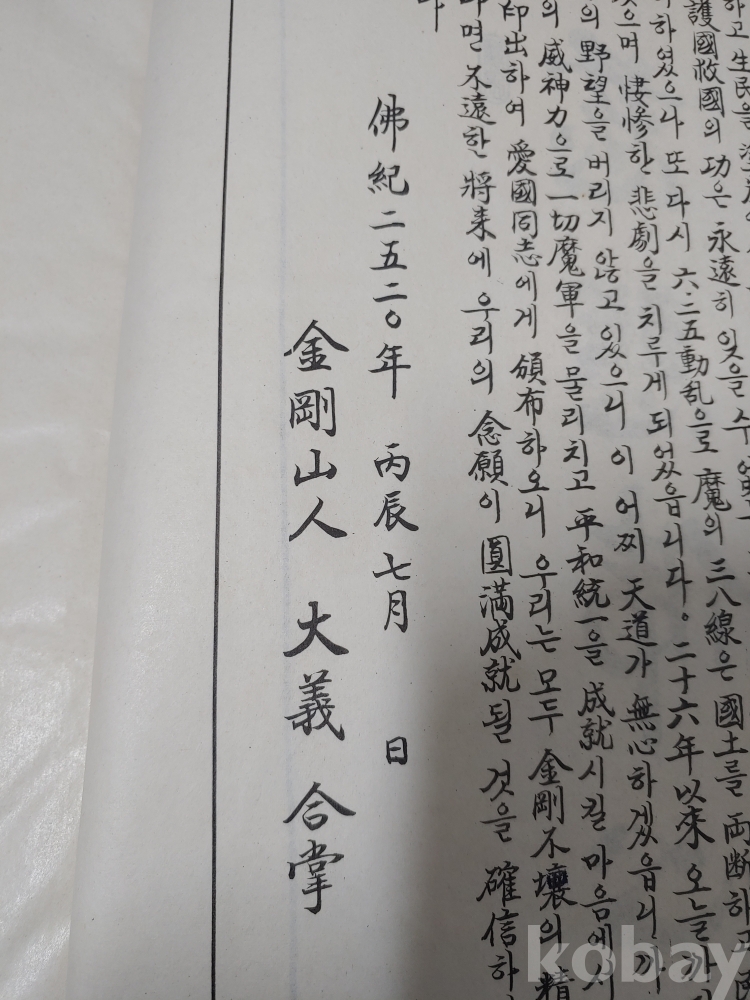 하고 生民을
護國救國의 功은 永遠히 잊을 수
하였으나 또 다시 六·二五動乱으로 魔의 三八線은 國土를 両断하고
으며 悽慘한 悲劇을 치루게 되었읍니다。二十六年以來 오늘까
의 野望을 버리지 않고 있으니 이 어찌 天道가 無心하겠읍니까
의 威神力으로 一切魔軍을 물리치고 平和統一을 成就시킬 마음에서
印出하여 愛國同志에게 頒布하오니 우리는 모두 金剛不壞의 精
면 不遠한 將来에 우리의 念願이 圓滿成就될 것을 確信하
다
佛紀二五二〇年 丙辰 七月 日
金剛山人 大義 合掌
kobay